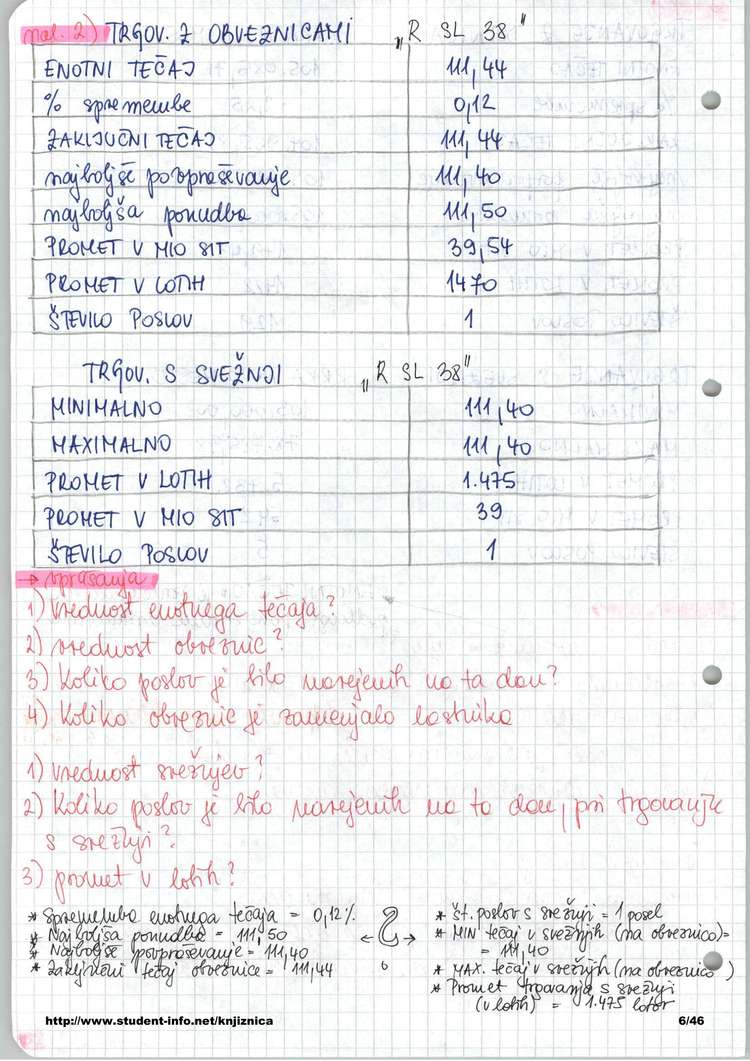 nal. 2) TRGOV. Z OBVEZNICAMI „R SL 38"
ENOTNI TEČAJ 111,44
% spremembe 0,12
ZAKLJUČNI TEČAJ 111,44
najboljše povpraševanje 111,40
najboljša ponudba 111,50
PROMET V MIO SIT 39,54
PROMET V LOTIH 1470
ŠTEVILO POSLOV 1
TRGOV. S SVEŽNJI „R SL 38"
MINIMALNO 111,40
MAXIMALNO 111,40
PROMET V LOTIH 1.475
PROMET V MIO SIT 39
ŠTEVILO POSLOV 1
→ vprašanja
1) Vrednost enotnega tečaja?
2) vrednost obveznic?
3) Koliko poslov je bilo narejenih na ta dan?
4) Koliko obveznic je zamenjalo lastnika
1) Vrednost svežnjev?
2) Koliko poslov je bilo narejenih na ta dan, pri trgovanju
s svežnji?
3) promet v lotih?
* Sprememba enotnega tečaja = 0,12%
* Najboljša ponudba = 111,50
* Najboljše povpraševanje = 111,40
* Zaključni tečaj obveznice = 111,44
* št. poslov s svežnji = 1 posel
* MIN tečaj v svežnjih (na obveznico) =
= 111,40
* MAX. tečaj v svežnjih (na obveznico)
* Promet trgovanja s svežnji
(v lotih) = 1.475 lotov
http://www.student-info.net/knjiznica 6/46